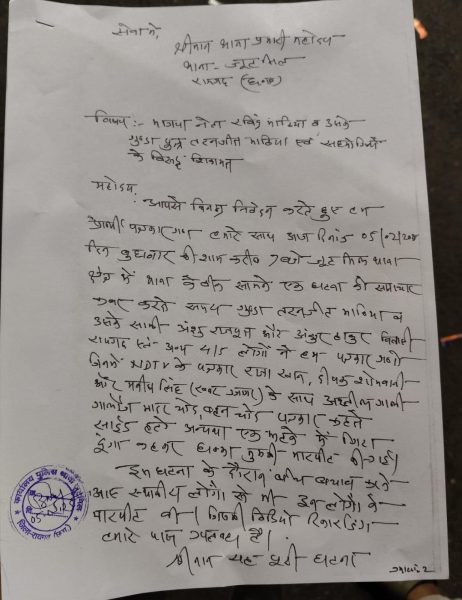 सेवा में,
श्रीमान थाना प्रभारी महोदय
थाना - जूटमिल
रायगढ़ (छ०ग०)
विषय :- भाजपा नेता रविंद्र भाटिया व उसके
गुण्डा पुत्र तरनजीत भाटिया एवं सहयोगियों
के विरूद्ध शिकायत
महोदय,
आपसे विनम्र निवेदन करते हुए हम
प्रार्थी पत्रकार गण हमारे साथ आज दिनांक 05/02/20
दिन बुधवार की शाम करीब 7 बजे जूटमिल थाना
क्षेत्र में थाना के ठीक सामने एक घटना की समाचार
कवर करते समय गुण्डा तरनजीत भाटिया व
उसके साथी अंशु राजपूत और अंकुर ठाकुर निवासी
रायगढ़ एवं अन्य 4/5 लोगों ने हम पत्रकार गणों
जिनमें NDTV के पत्रकार राजा खान, दीपक शोभवानी
और मनीष सिंह (खबर उजागर) के साथ अश्लील गाली
गालौज मादर चोद, बहन चोद पत्रकार कहते
साईड हटो अन्यथा एक झटके में गिरा
दूंगा कहकर धक्का मुक्की मारपीट की गई।
इस घटना के दौरान बीच बचाव करने
आए स्थानीय लोगों से भी इन लोगों ने
मारपीट की जिसकी विडियो रिकार्डिंग
हमारे पास उपलब्ध है।
श्रीमान यह पूरी घटना
कार्यालय पुलिस थाना जूटमिल
05
जिला-रायगढ़ (छ.ग.)